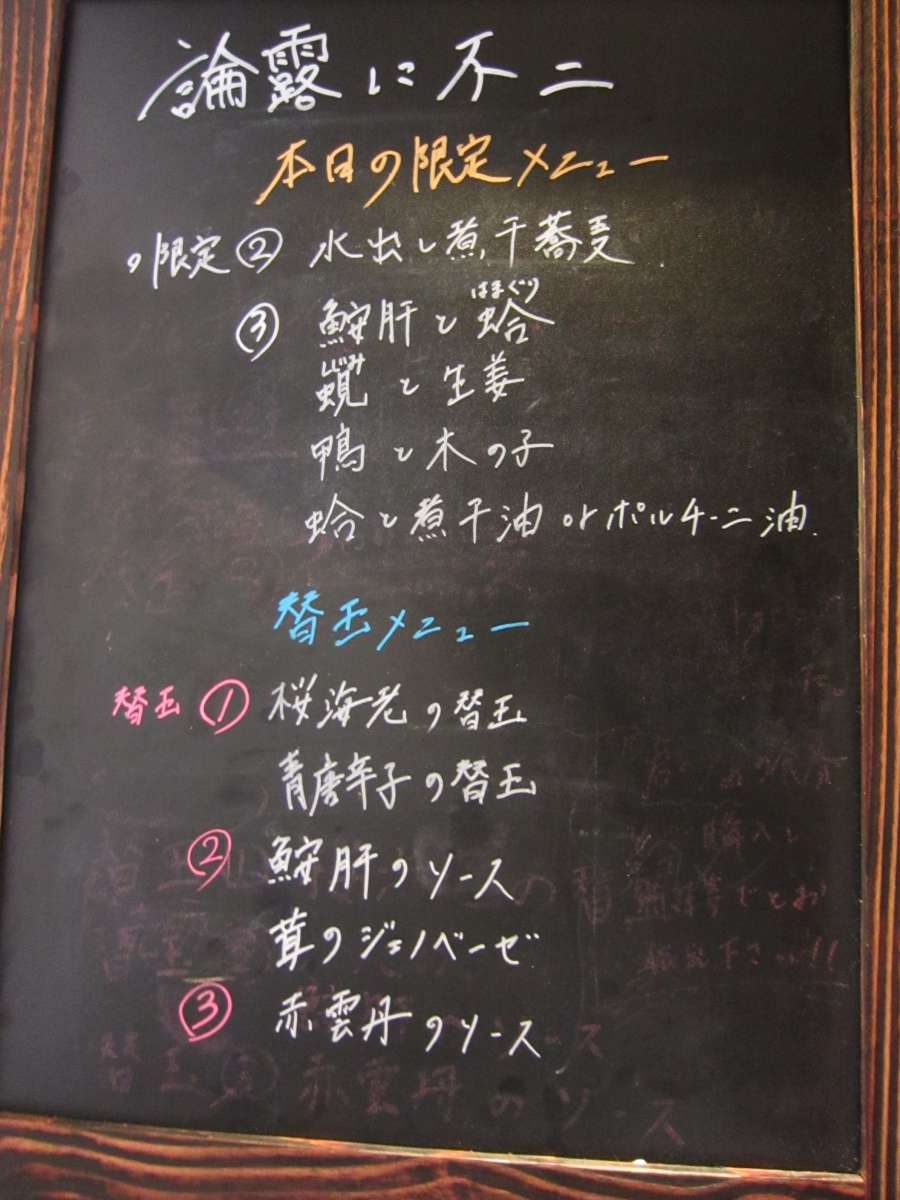 論露に不二
本日の限定メニュー
の限定② 水出し煮干蕎麦
③ 鮟肝と蛤
はまぐり
蜆と生姜
しじみ
鴨と木の子
蛤と煮干油orポルチーニ油
替玉メニュー
替玉① 桜海老の替玉
青唐辛子の替玉
② 鮟肝のソース
茸のジェノベーゼ
③ 赤雲丹のソース